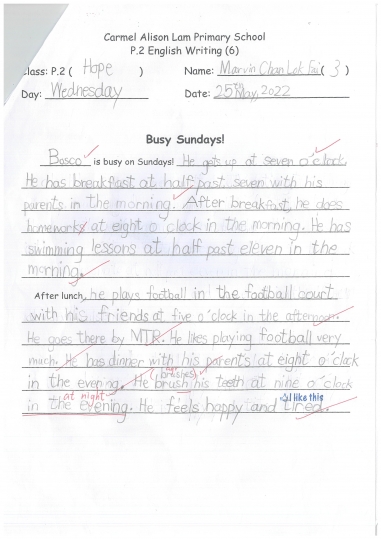 Carmel Alison Lam Primary School
P.2 English Writing (6)
Class: P.2 ( Hope ) Name: Marvin Chan Lok Fai ( 3 )
Day: Wednesday Date: 25th May, 2022
Busy Sundays!
Bosco is busy on Sundays! He gets up at seven o'clock.
He has breakfast at half past seven with his
parents in the morning. After breakfast, he does
homework at eight o'clock in the morning. He has
swimming lessons at half past eleven in the
morning.
After lunch, he plays football in the football court
with his friends at five o'clock in the afternoon.
He goes there by MTR. He likes playing football very
much. He has dinner with his parents at eight o'clock
in the evening. He brush his teeth at nine o'clock
(brushes)
at night
I like this
in the evening. He feels happy and tired.